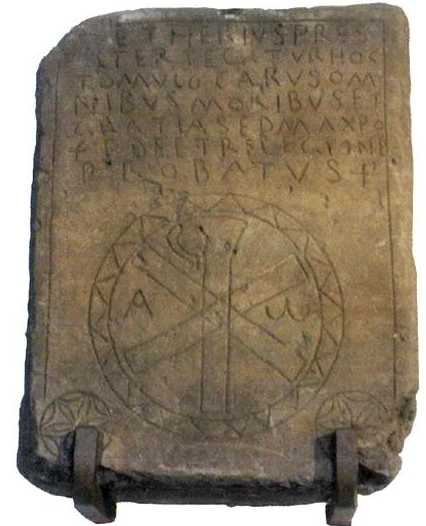 ETHERIVSPRES
TERTEGETVRHOC
TOMVLOCARVSOM
NIBVSMORIBVSET
GRATIASEDMAXPO
DEIETRELEGIONE
PROBATVS
A ω